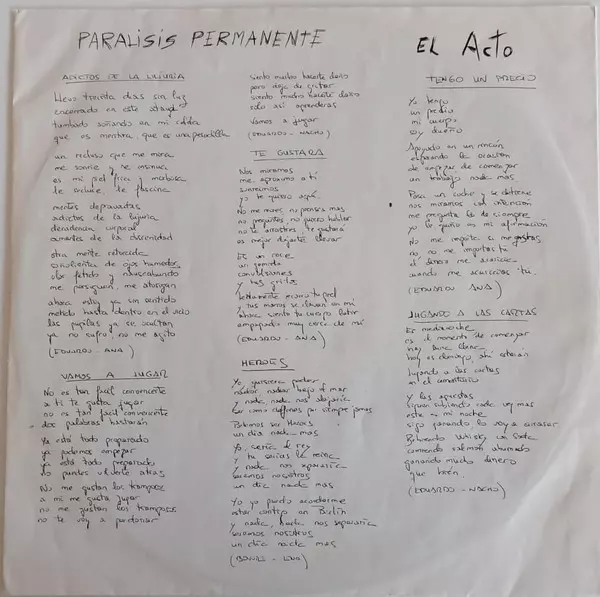 PARALISIS PERMANENTE
EL Acto
ADICTOS DE LA LUJURIA
Llevo treinta dias sin luz
encerrado en este ataud
tumbado soñando en mi caida
que es mentira, que es una pesadilla
un recluso que me mora
me sonrie y se insinua
es mi piel fria y morbosa
te seduce, te fascina
mentes depravadas
adictos de la lujuria
decadencia corporal
amantes de la obscenidad
otra mente retorcida
ojos humedos
olor fetido y nauseabundo
me persiguen, me atosigan
ahora estoy ya sin sentido
metido hasta dentro en el vicio
las pupilas ya se ocultan
ya no sufro, no me agito
(EDUARDO - ANA)
VAMOS A JUGAR
No es tan facil convencerte
a ti te gusta jugar
no es tan facil convencerte
dos palabras bastarán
Ya está todo preparado
ya podemos empezar
ya está todo preparado
no puedes volverte atras
No me gustan los tramposos
a mi me gusta jugar
no me gustan los tramposos
no te voy a perdonar
siento mucho hacerte daño
pero deja de gritar
siento mucho hacerte daño
solo asi aprenderas
Vamos a jugar
(EDUARDO - NACHO)
TE GUSTARÁ
Nos miramos
me aproximo a ti
sonreimos
yo te quiero aqui
No me mires, no pienses mas
no preguntes, no quiero hablar
no te arrastres, te gustará
es mejor dejarte llevar
Es un roce
un gemido
convulsiones
y tus gritos
Lentamente araño tu piel
y tus manos se clavan en mi
ahora siento tu cuerpo latir
empapado muy cerca de mi
(EDUARDO - ANA)
HEROES
Yo, quisiera poder
nadar nadar bajo el mar
y nada, nada nos alejaria
ser como delfines por siempre jamas
Podemos ser Heroes
un dia nada mas
Yo, seria el rey
y tu serias la reina
y nada nos separaria
seremos nosotros
un dia nada mas
Yo yo puedo acordarme
estar contigo en Berlin
y nada, nada nos separaria
seremos nosotros
un dia nada mas
(BOWIE - ENO)
TENGO UN PRECIO
Yo tengo
un precio
mi cuerpo
soy dueño
Apoyado en un rincon
esperando la ocasion
de empezar de comenzar
un trabajo nada mas
Pasa un coche y se detiene
nos miramos con intencion
me pregunta lo de siempre
yo le guiño en mi afirmación
No me importa si me gustas
no no me importas tú
el dinero me acaricia
cuando me acaricias tu.
(EDUARDO ANA)
JUGANDO A LAS CARTAS
Es medianoche
es el momento de comenzar
hay luna llena
hoy es domingo, ahi estarán
jugando a las cartas
en el cementerio
Y las apuestas
siguen subiendo cada vez mas
esta es mi noche
sigo ganando, lo voy a arrasar
Bebiendo Whisky con Soda
comiendo salmon ahumado
ganando mucho dinero
que bien.
(EDUARDO - NACHO)